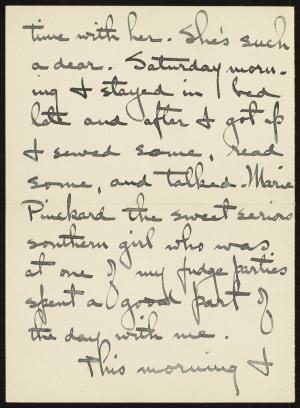 time with her. She's such
a dear. Saturday morn-
ing I stayed in bed
late and after I got up
I sewed some, read
some, and talked. Marie
Pinckard the sweet serious
southern girl who was
at one of my fudge parties
spent a good part of
the day with me.
This morning I